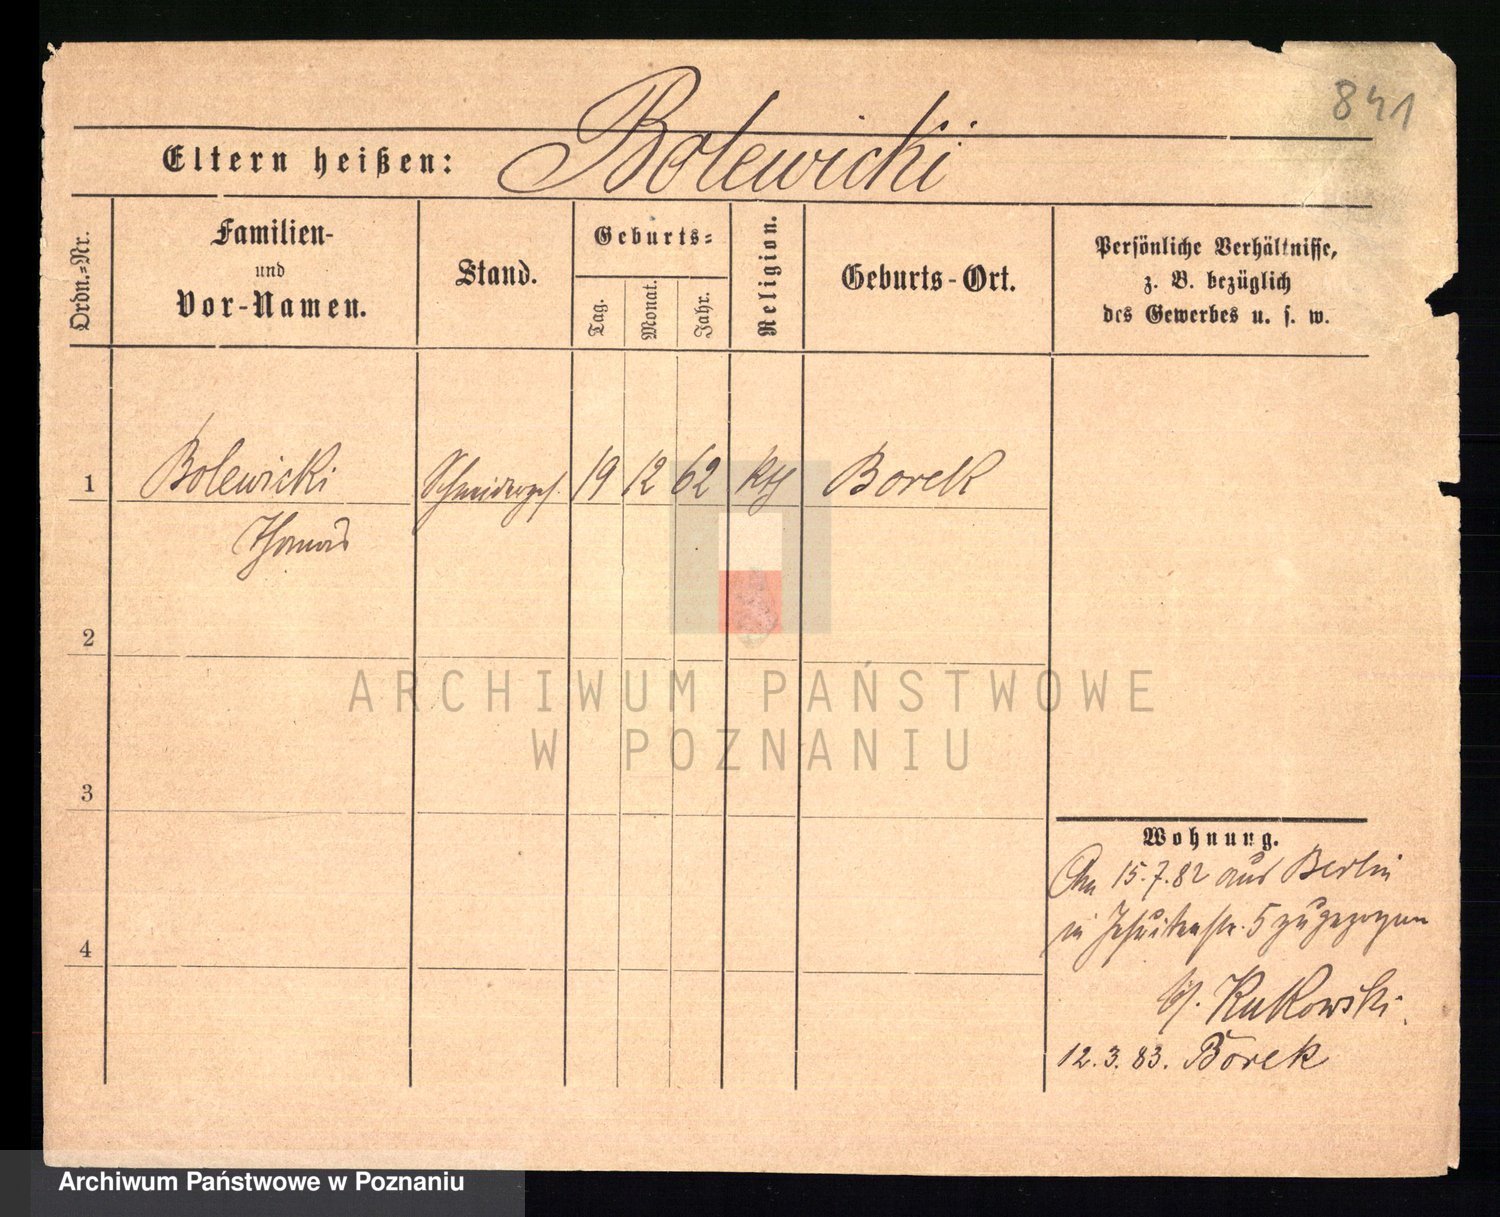 841
Eltern heißen: Bolewicki
Ordn.-Nr.
Familien-
und
Vor-Namen.
Stand.
Geburts-
Tag.
Monat.
Jahr.
Religion.
Geburts-Ort.
Persönliche Verhältnisse,
z. B. bezüglich
des Gewerbes u. s. w.
1 Bolewicki Schneiderges. 19 12 62 kth Borek
Thomas
2
3
4
ARCHIWUM PAŃSTWOWE
W POZNANIU
Wohnung.
Am 15.7.82 aus Berlin
in Jesuitenstr. 5 zugezogen
b/. Kukowski.
12.3.83. Borek
Archiwum Państwowe w Poznaniu